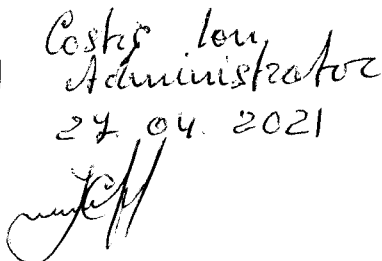 Costiș Ion
Administrator
27.04.2021